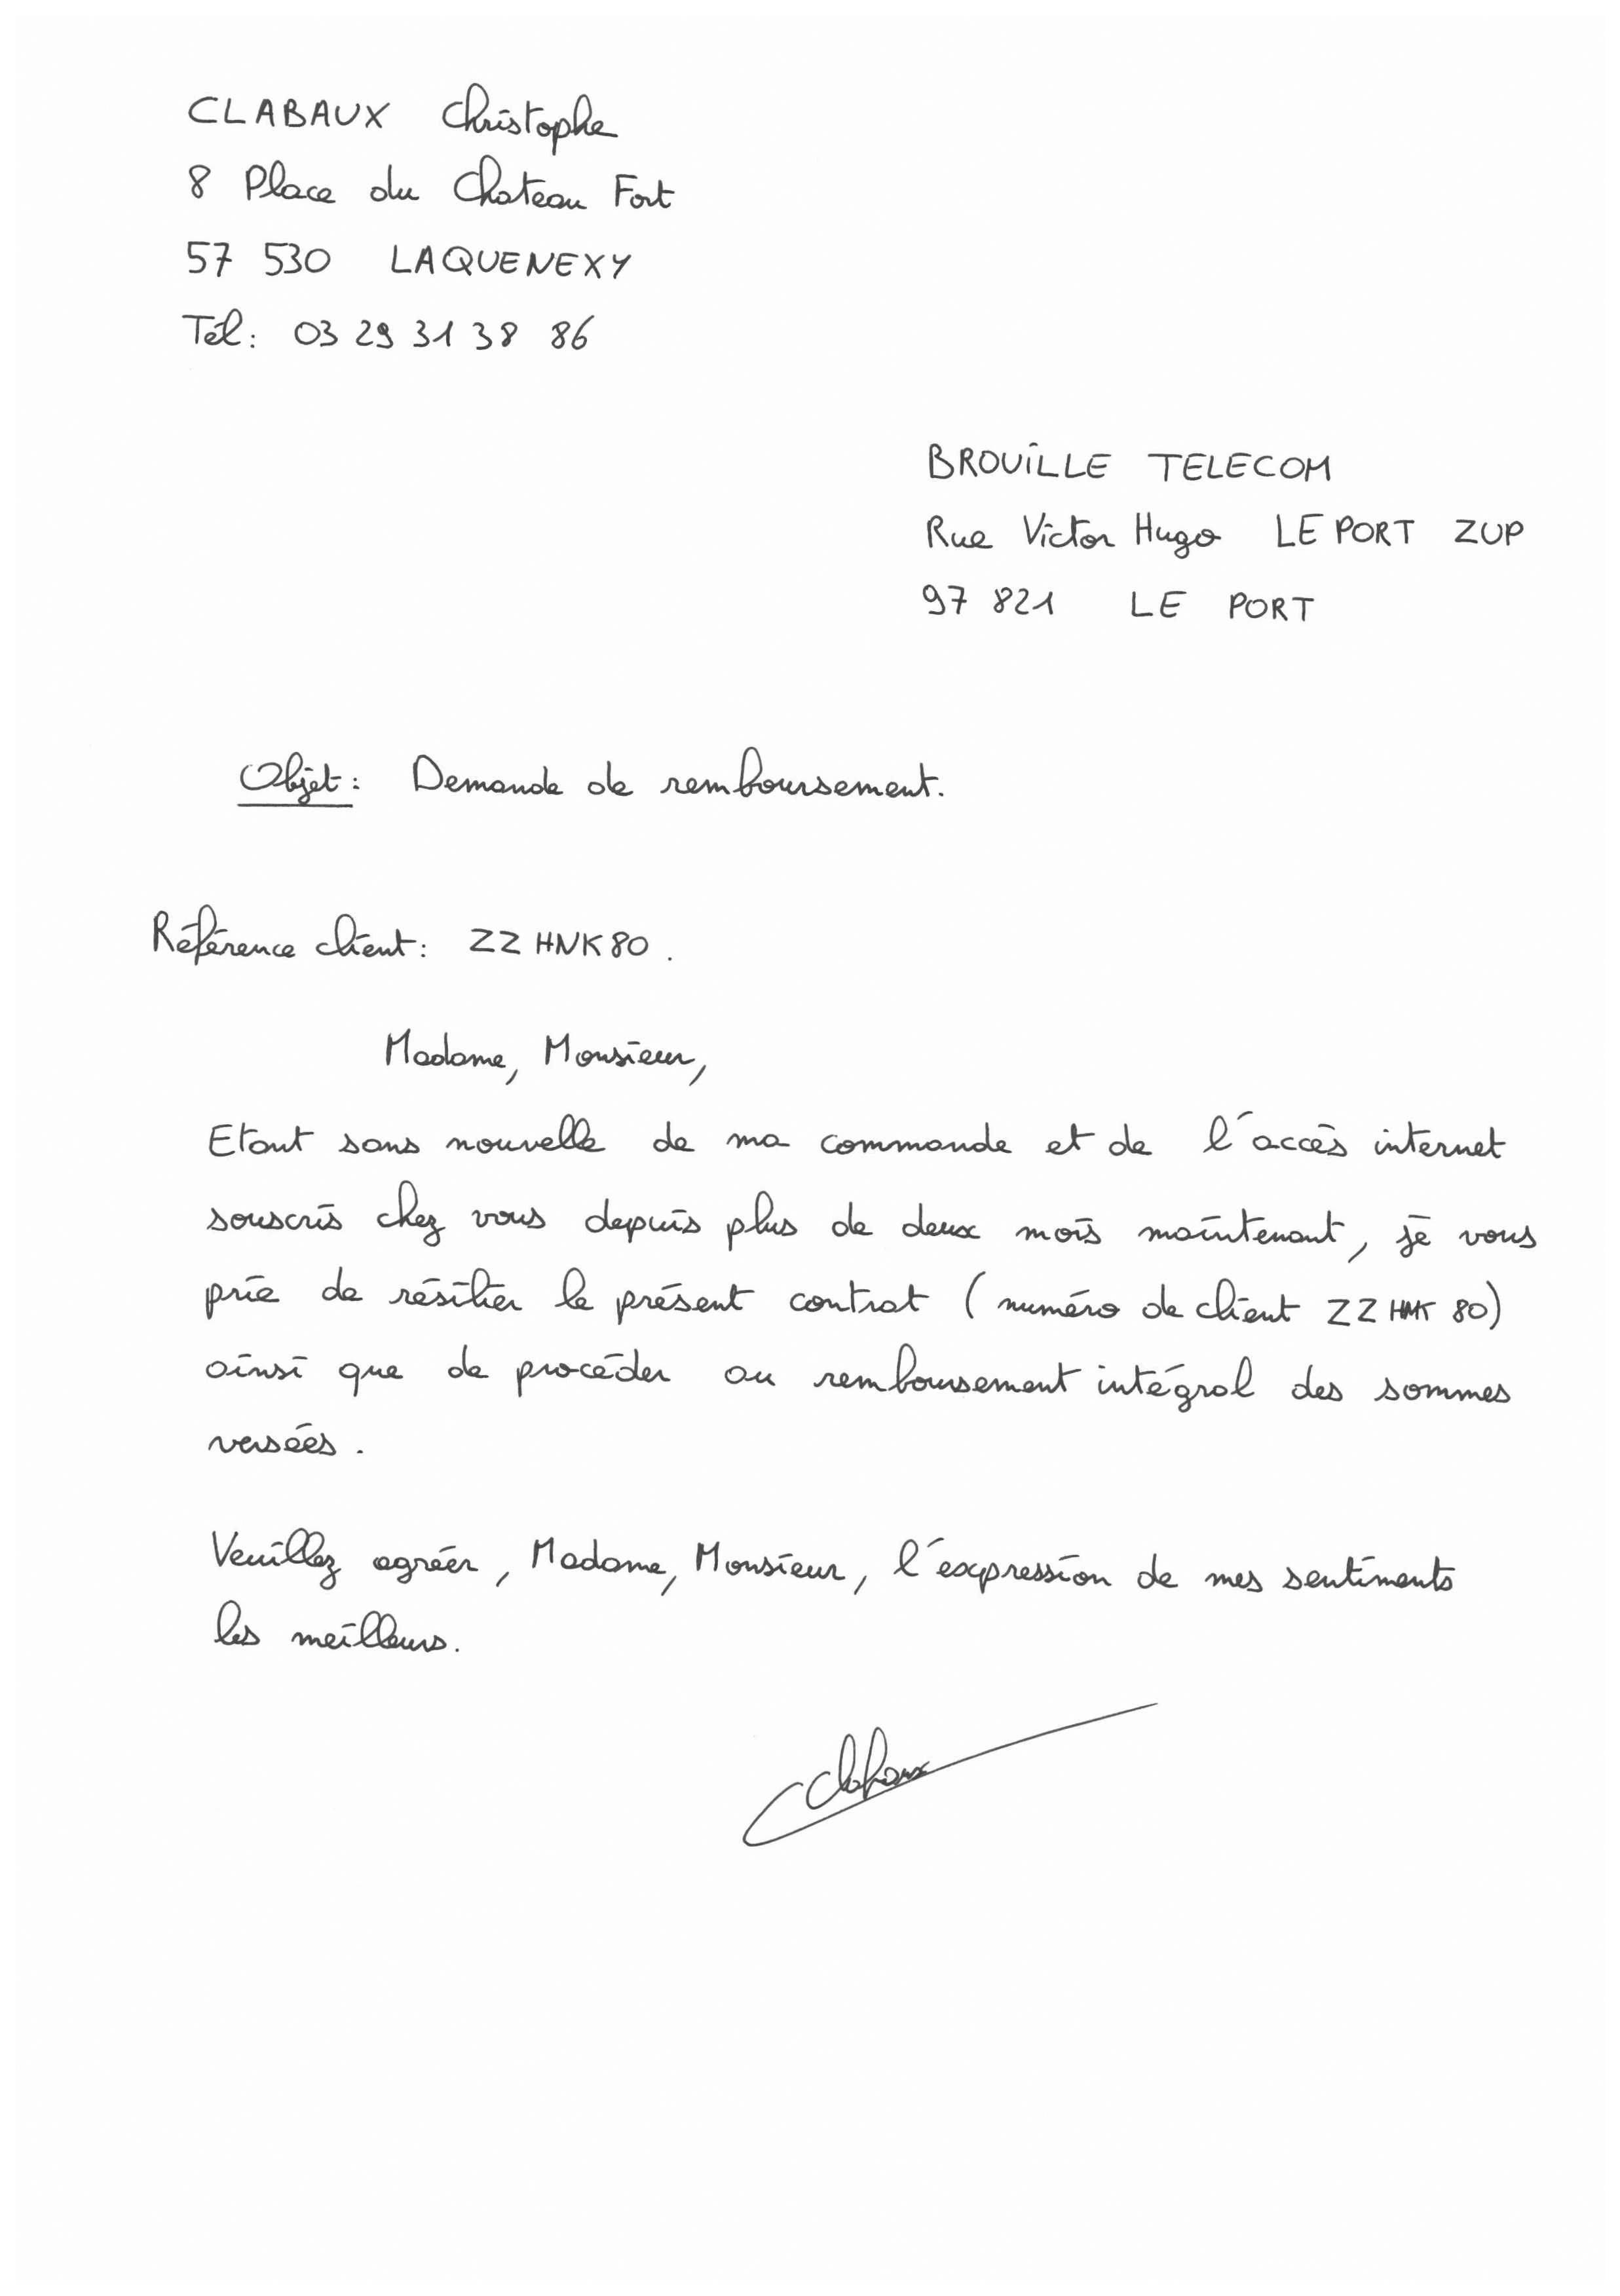 CLABAUX Christophe
8 Place du Chateau Fort
57 530 LAQUENEXY
Tél: 03 29 31 38 86
BROUILLE TELECOM
Rue Victor Hugo LE PORT ZUP
97 821 LE PORT
Objet: Demande de remboursement.
Référence client: ZZHNK80.
Madame, Monsieur,
Etant sans nouvelle de ma commande et de l'accès internet
souscris chez vous depuis plus de deux mois maintenant, je vous
prie de résilier le présent contrat (numéro de client ZZ HNK 80)
ainsi que de procéder au remboursement intégral des sommes
versées.
Veuillez agréer, Madame, Monsieur, l'expression de mes sentiments
les meilleurs.
Clabaux